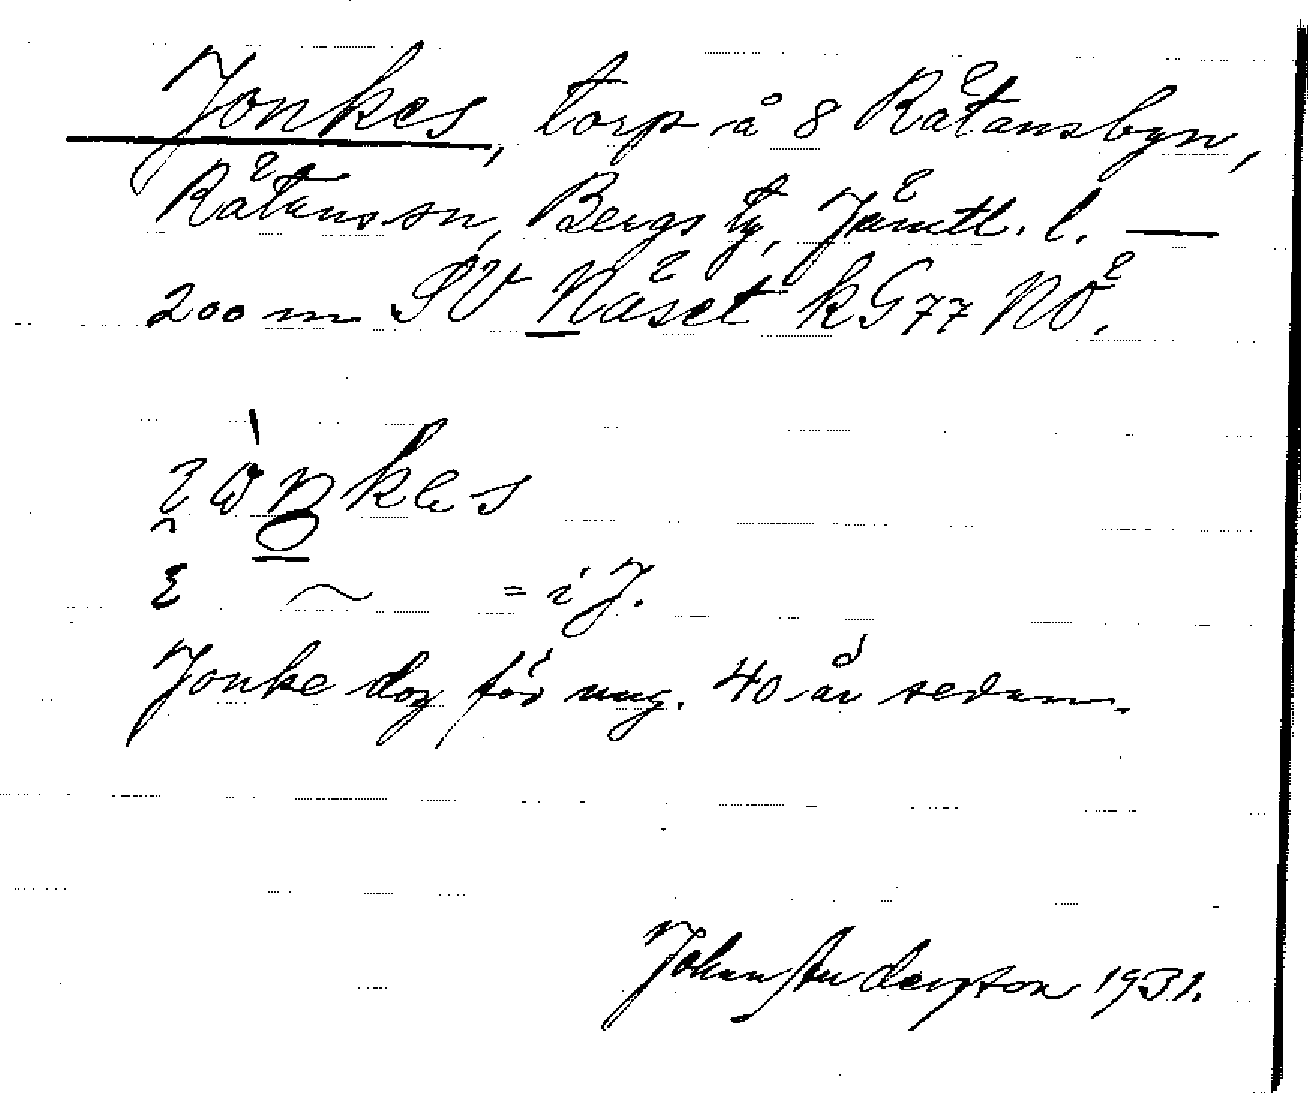 Jonkes, torp å 8 Råtansbyn,
Råtans sn, Bergs tg, Jämtl. l. —
200 m SV Näset kG77 NÖ.
= i J.
Jonke dog för ung. 40 år sedan.
Johan Anderson 1931.